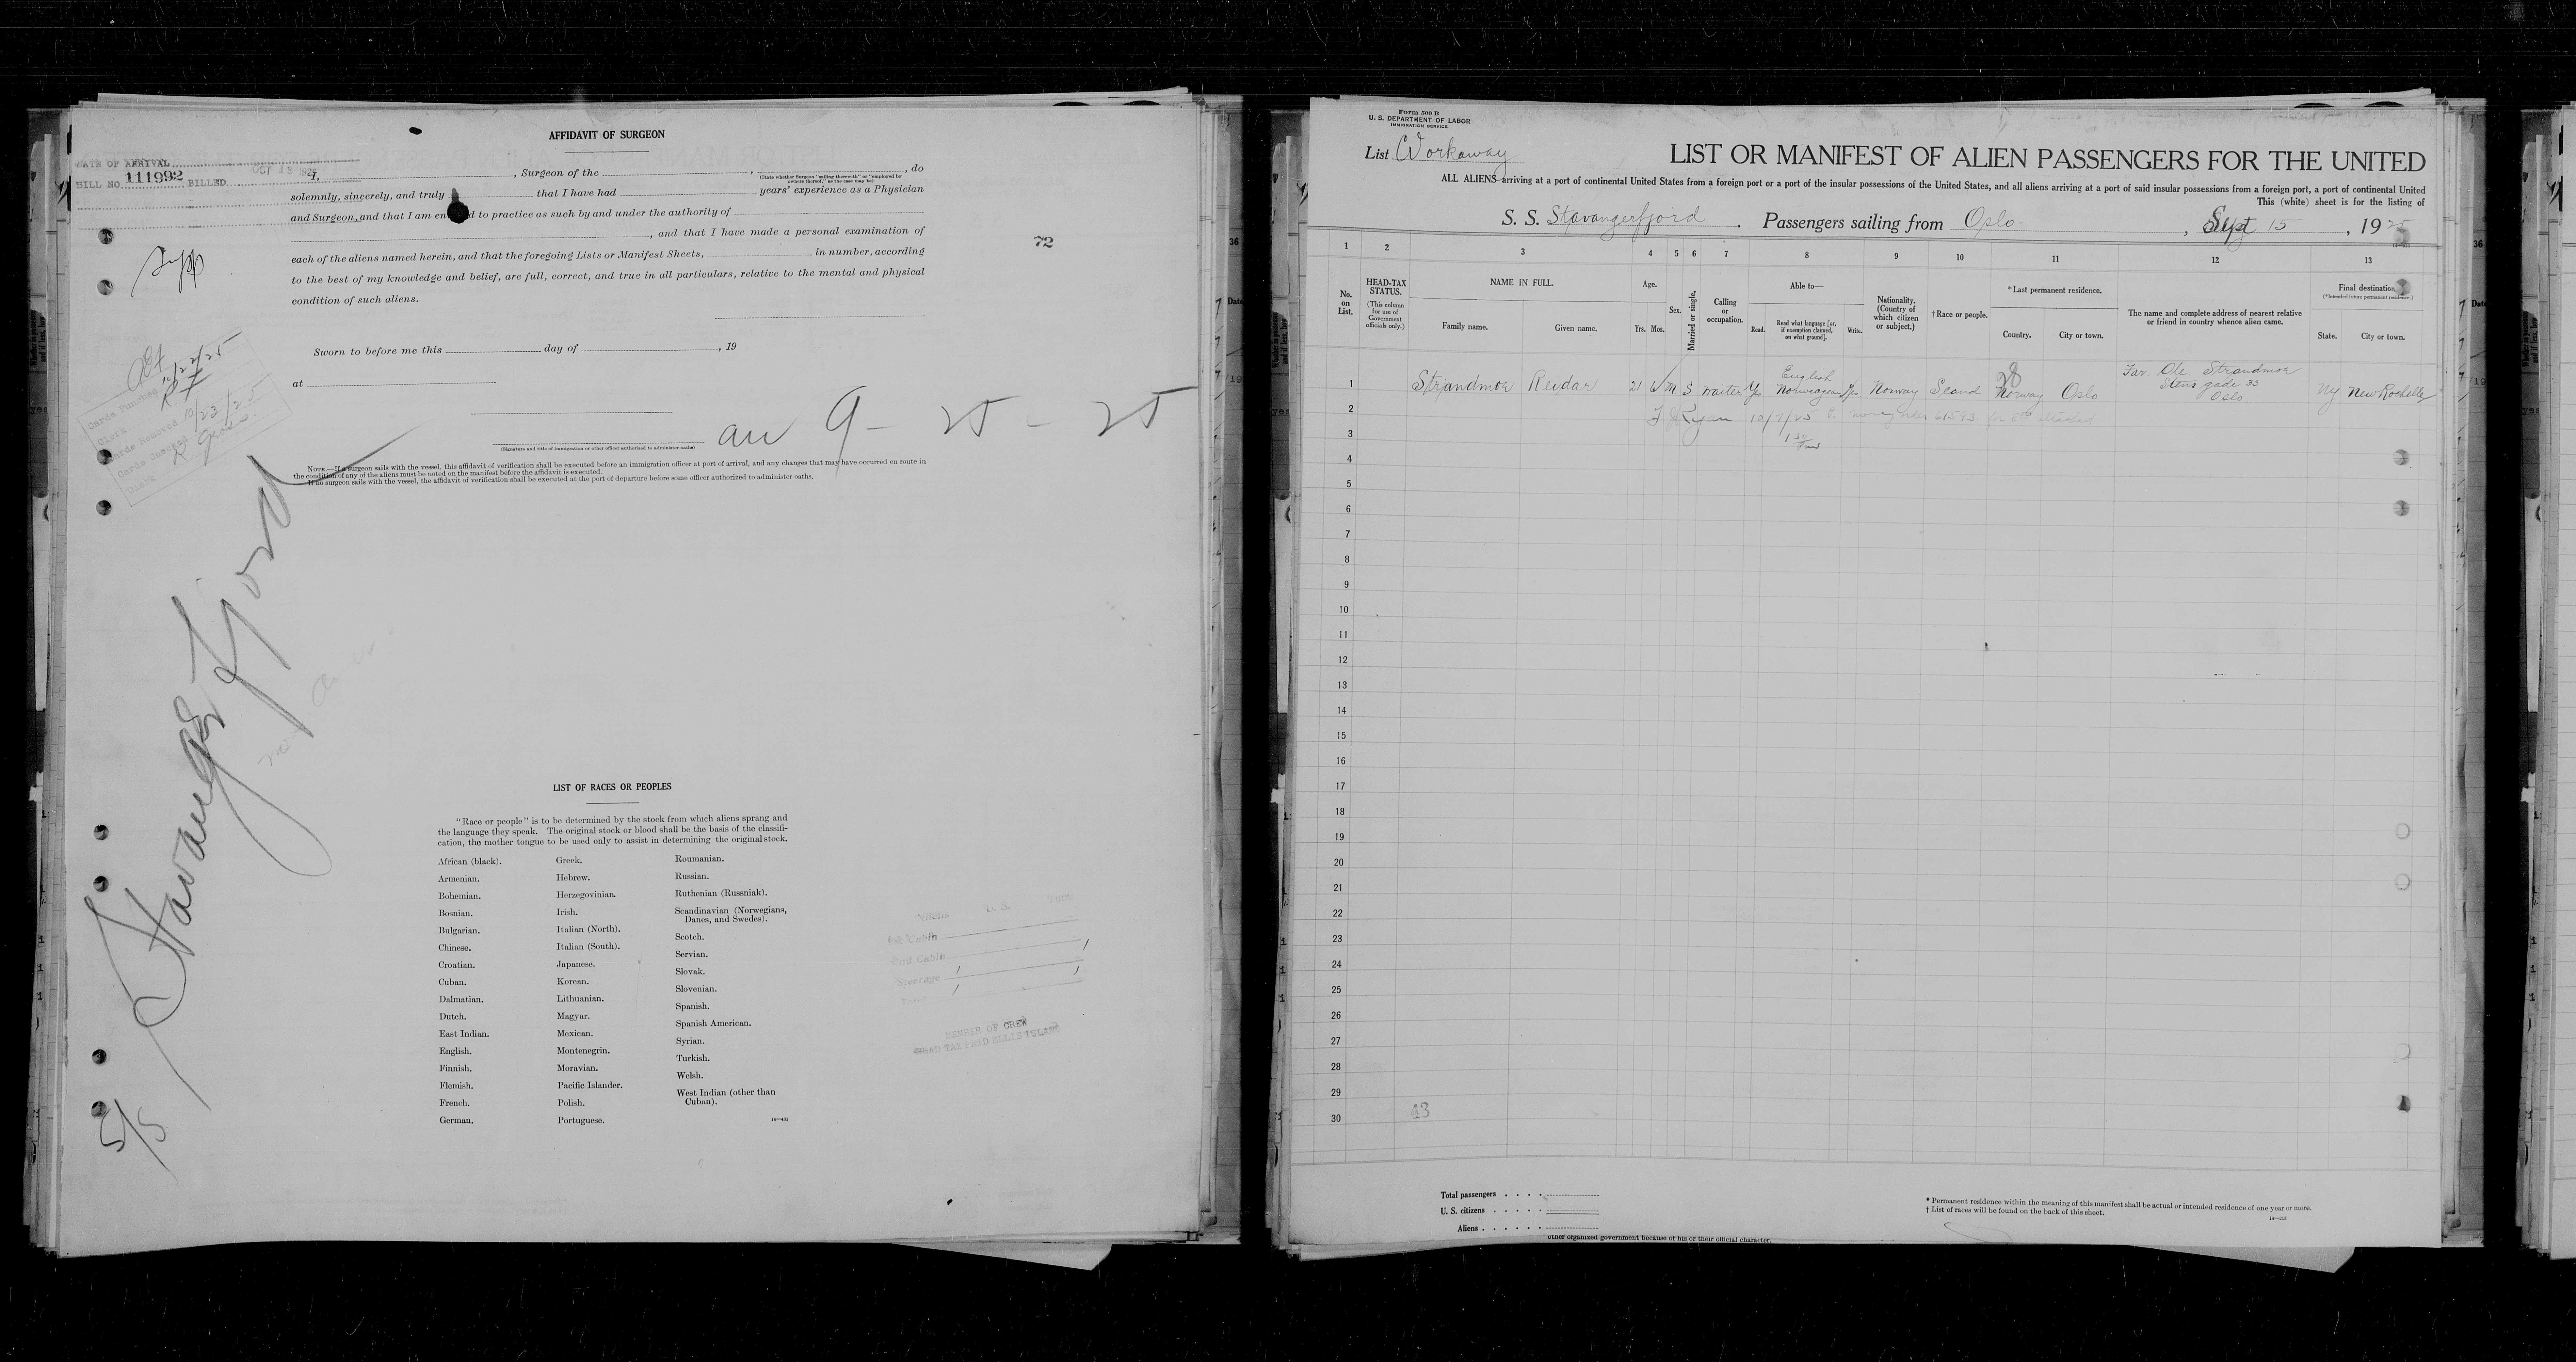 AFFIDAVIT OF SURGEON
DATE OF ARRIVAL
BILL NO. 111992 BILLED OCT 13 1925
I, , Surgeon of the , , do
(State whether Surgeon "sailing therewith" or "employed by owners thereof," as the case may be)
solemnly, sincerely, and truly that I have had years' experience as a Physician
and Surgeon, and that I am en d to practice as such by and under the authority of
, and that I have made a personal examination of
each of the aliens named herein, and that the foregoing Lists or Manifest Sheets, in number, according
to the best of my knowledge and belief, are full, correct, and true in all particulars, relative to the mental and physical
condition of such aliens.
72
Supp
Sworn to before me this day of , 19
at
Cards Punched
Clerk
Cards Removed 10/23/25
Cards Checked
Clerk
(Signature and title of immigration or other officer authorized to administer oaths)
arr 9 - 25 - 25
NOTE.—If a surgeon sails with the vessel, this affidavit of verification shall be executed before an immigration officer at port of arrival, and any changes that may have occurred en route in
the condition of any of the aliens must be noted on the manifest before the affidavit is executed.
If no surgeon sails with the vessel, the affidavit of verification shall be executed at the port of departure before some officer authorized to administer oaths.
S/S Stavangerfjord
LIST OF RACES OR PEOPLES
"Race or people" is to be determined by the stock from which aliens sprang and
the language they speak. The original stock or blood shall be the basis of the classifi-
cation, the mother tongue to be used only to assist in determining the original stock.
African (black).
Armenian.
Bohemian.
Bosnian.
Bulgarian.
Chinese.
Croatian.
Cuban.
Dalmatian.
Dutch.
East Indian.
English.
Finnish.
Flemish.
French.
German.
Greek.
Hebrew.
Herzegovinian.
Irish.
Italian (North).
Italian (South).
Japanese.
Korean.
Lithuanian.
Magyar.
Mexican.
Montenegrin.
Moravian.
Pacific Islander.
Polish.
Portuguese.
Roumanian.
Russian.
Ruthenian (Russniak).
Scandinavian (Norwegians,
Danes, and Swedes).
Scotch.
Servian.
Slovak.
Slovenian.
Spanish.
Spanish American.
Syrian.
Turkish.
Welsh.
West Indian (other than
Cuban).
Aliens U. S. Total
Cabin
2nd Cabin
Steerage 1 1
Total 1
MEMBER OF CREW
HEAD TAX PAID ELLIS ISLAND
Form 500 B
U. S. DEPARTMENT OF LABOR
IMMIGRATION SERVICE
List Workaway
LIST OR MANIFEST OF ALIEN PASSENGERS FOR THE UNITED
ALL ALIENS arriving at a port of continental United States from a foreign port or a port of the insular possessions of the United States, and all aliens arriving at a port of said insular possessions from a foreign port, a port of continental United
This (white) sheet is for the listing of
S. S. Stavangerfjord . Passengers sailing from Oslo , Sept 15 , 1925
1 2 3 4 5 6 7 8 9 10 11 12 13
No. on List.
HEAD-TAX STATUS.
(This column for use of Government officials only.)
NAME IN FULL.
Family name. Given name.
Age.
Yrs. Mos.
Sex.
Married or single.
Calling or occupation.
Able to—
Read. Read what language [or, if exemption claimed, on what ground]. Write.
Nationality. (Country of which citizen or subject.)
†Race or people.
*Last permanent residence.
Country. City or town.
The name and complete address of nearest relative or friend in country whence alien came.
Final destination.
(*Intended future permanent residence.)
State. City or town.
1 Strandmoe Reidar 21 M S waiter Yes English Norwegian Yes Norway Scand Norway Oslo Far Ole Strandmoe Stens gade 33 Oslo NY New Rochelle
28
2
3
4
5
6
7
8
9
10
11
12
13
14
15
16
17
18
19
20
21
22
23
24
25
26
27
28
29
30
43
Total passengers
U. S. citizens
Aliens
* Permanent residence within the meaning of this manifest shall be actual or intended residence of one year or more.
† List of races will be found on the back of this sheet.
other organized government because of his or their official character.